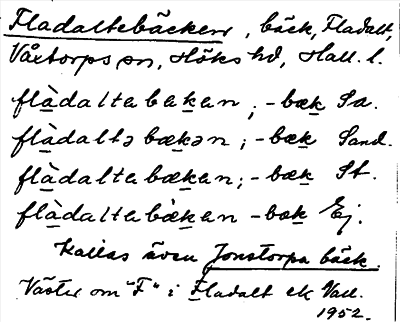 Fladaltebäcken, bäck, Fladalt,
Våxtorps sn, Höks hd, Hall. l.
flàdaltabakan; -bæk Sa.
flàdaltəbækən; -bæk Sand.
flàdaltabækan; -bæk St.
flàdaltabækan -bæk Ej.
Kallas även Jonstorpa bäck.
Väster om "F" i Fladalt ek Vall.
1952.